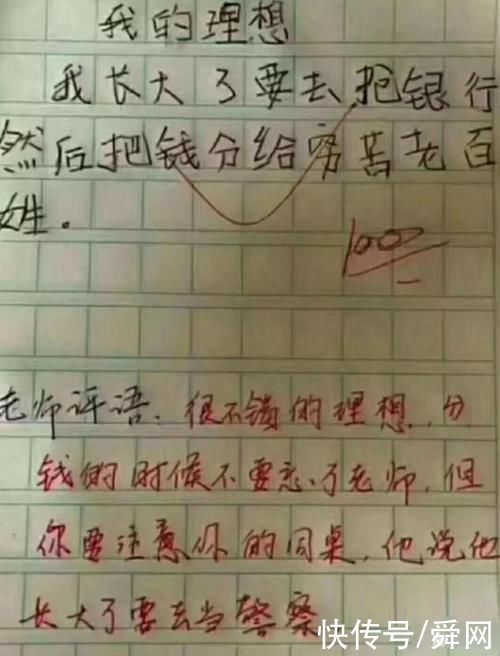 我的理想
我长大了要去抢银行
然后把钱分给穷苦老百
姓。
100
老师评语：很不错的理想，分
钱的时候不要忘了老师，但
你要注意你的同桌，他说他
长大了要去当警察
快传号/舜网